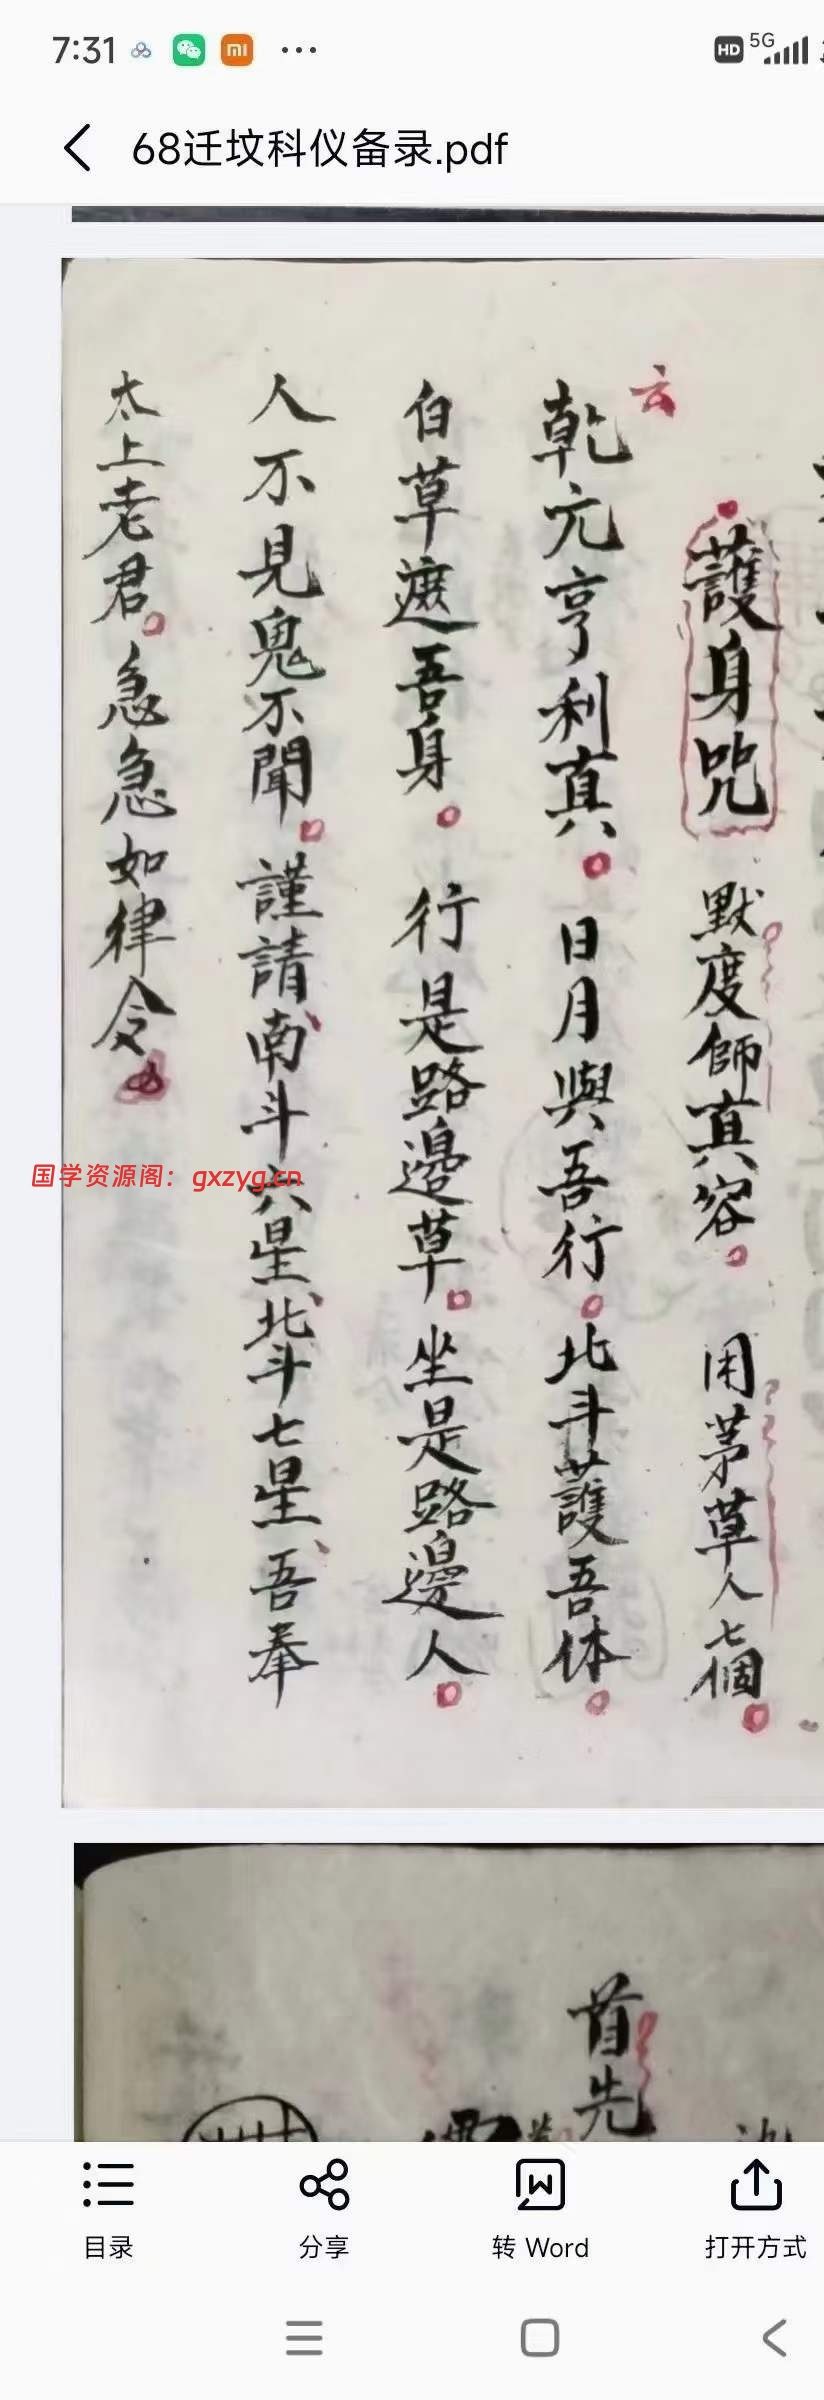 7:31
HD 5G
68迁坟科仪备录.pdf
護身咒 默度師真容 用茅草人七個
云
乾亢亨利真 日月與吾行 北斗護吾体
白草遮吾身 行是路邊草 坐是路邊人
人不見鬼不聞 謹請南斗六星北斗七星 吾奉
太上老君 急急如律令
国学资源阁：gxzyg.cn
首先
目录
分享
转 Word
打开方式